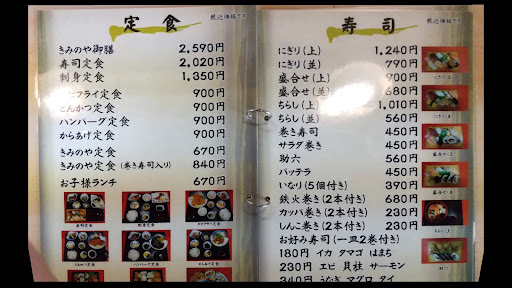 定食
税込価格です
きみのや御膳 2,590円
寿司定食 2,020円
刺身定食 1,350円
フライ定食 900円
とんかつ定食 900円
ハンバーグ定食 900円
からあげ定食 900円
きみのや定食 670円
きみのや定食(巻き寿司入り) 840円
お子様ランチ 670円
寿司定食
刺身定食
とんかつ定食
からあげ定食
寿司
税込価格です
にぎり(上) 1,240円
にぎり(並) 790円
盛合せ(上) 900円
盛合せ(並) 680円
ちらし(上) 1,010円
ちらし(並) 560円
巻き寿司 450円
サラダ巻き 450円
助六 560円
バッテラ 450円
いなり(5個付き) 390円
鉄火巻き(2本付き) 680円
カッパ巻き(2本付き) 230円
しんこ巻き(2本付き) 230円
お好み寿司(一皿2巻付き)
180円 イカ タマゴ はまち
230円 エビ 貝柱 サーモン
340円 うなぎ マグロ タイ
にぎり(上)
盛合せ(上)
ちらし(上)
助六